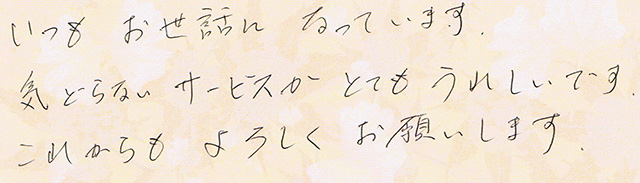 いつも お世話に なっています.
気どらない サービスが とても うれしいです.
これからも よろしく お願いします.